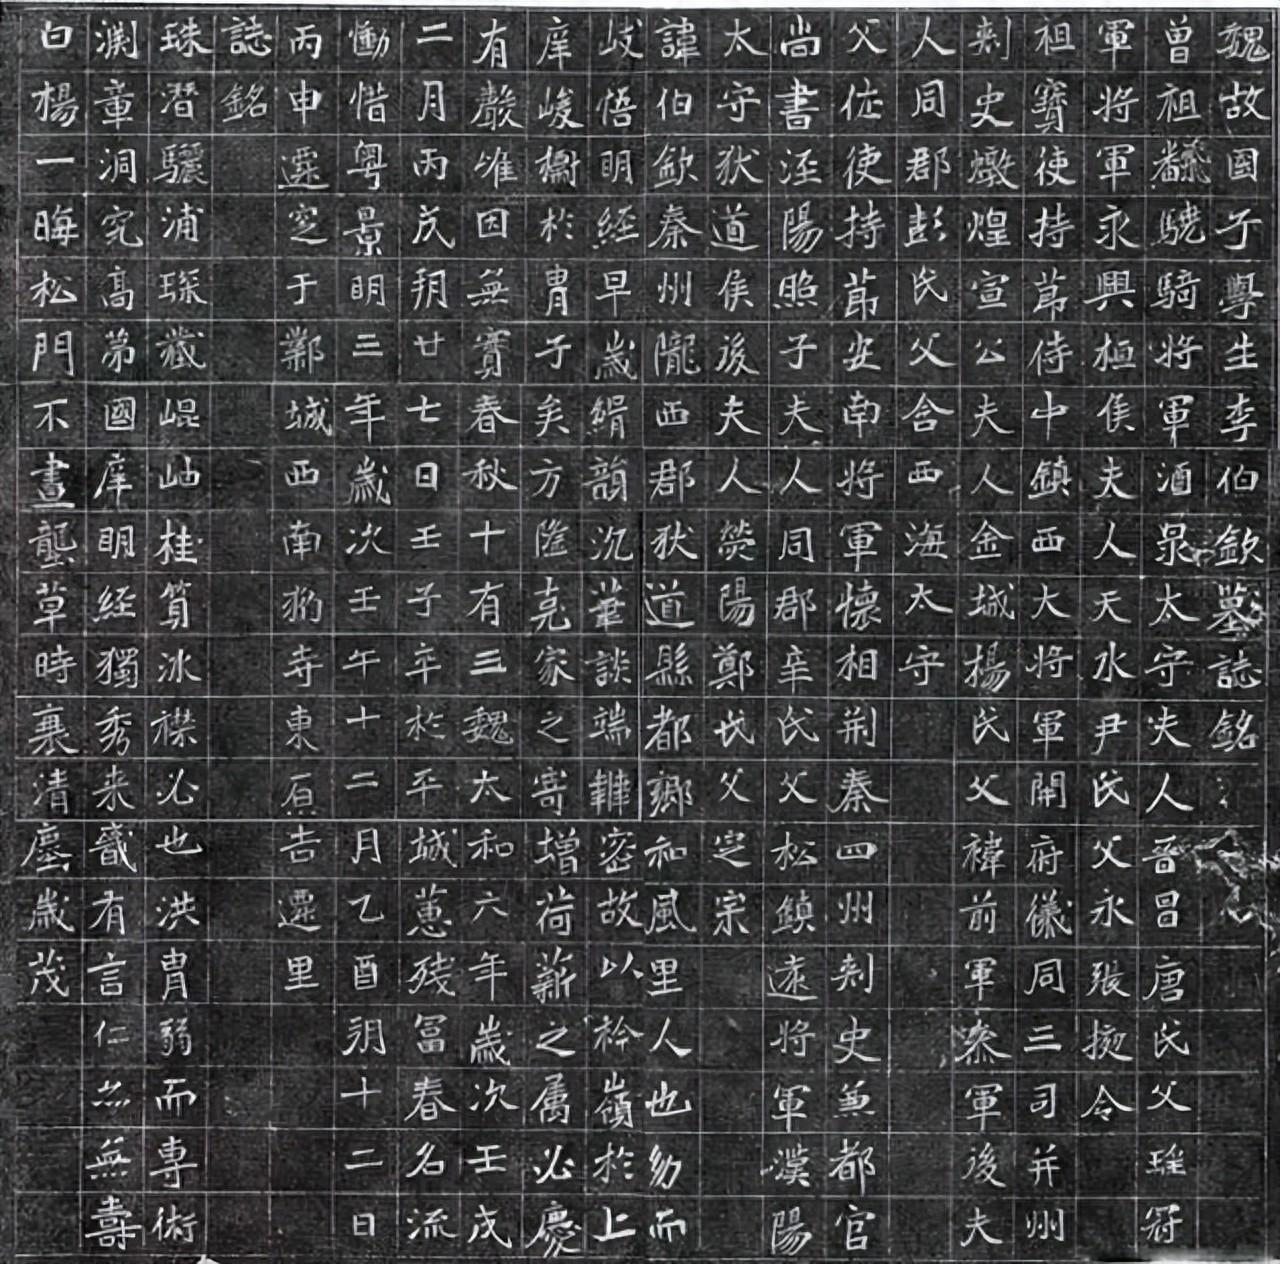 魏故國子學生李伯欽墓誌銘
曾祖飜驍騎將軍酒泉太守夫人晉昌唐氏父瑶冠
軍將軍永興桓侯夫人天水尹氏父永張掖令
祖寶使持節侍中鎮西大將軍開府儀同三司并州
刺史燉煌宣公夫人金城楊氏父褘前軍參軍後夫
人同郡彭氏父含西海太守
父佐使持節安南將軍懷相荊秦四州刺史兼都官
尚書涇陽照子夫人同郡辛氏父松鎮遠將軍漢陽
太守狄道侯後夫人滎陽鄭氏父定宗
諱伯欽秦州隴西郡狄道縣都鄉和風里人也幼而
岐悟明經早歲緝韻沉華談端韡密故以衿嶺於上
庠峻櫩於胄子矣方隆克家之寄增荷薪之属必慶
有嚴唯因無賽春秋十有三魏太和六年歲次壬戌
二月丙戌朔廿七日壬子卒於平城蕙殘冨春名流
慟惜粤景明三年歲次壬午十二月乙酉朔十二日
丙申遷窆于鄴城西南豹寺東原吉遷里
誌銘
珠潛驪浦琛藏崐岫桂質冰襟必也洪胄弱而專術
渊章洞究高第國庠明經獨秀来識有言仁亦無壽
白楊一晦松門不晝壟草時衰清塵歲茂